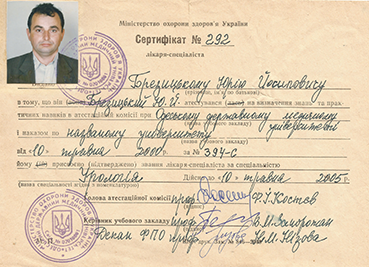 Міністерство охорони здоров'я України
Сертифікат № 292
лікаря-спеціаліста
Брезицькому Юрію Йосиповичу
в тому, що він Брезицький Ю.Й. атестувався на визначення знань та прак-
тичних навиків в атестаційній комісії при Одеському державному медичному
університеті
і наказом по названому університету
від «10» травня 2000 р. за № 394-О
йому присвоєно (підтверджено) звання лікаря-спеціаліста за спеціальністю
Урологія Дійсний до «10» травня 2005 р.
(назва спеціальності згідно з номенклатурою)
Голова атестаційної комісії проф. Ф.І. Костєв
Керівник учбового закладу проф. В.М. Запорожан
Декан ФПО проф.